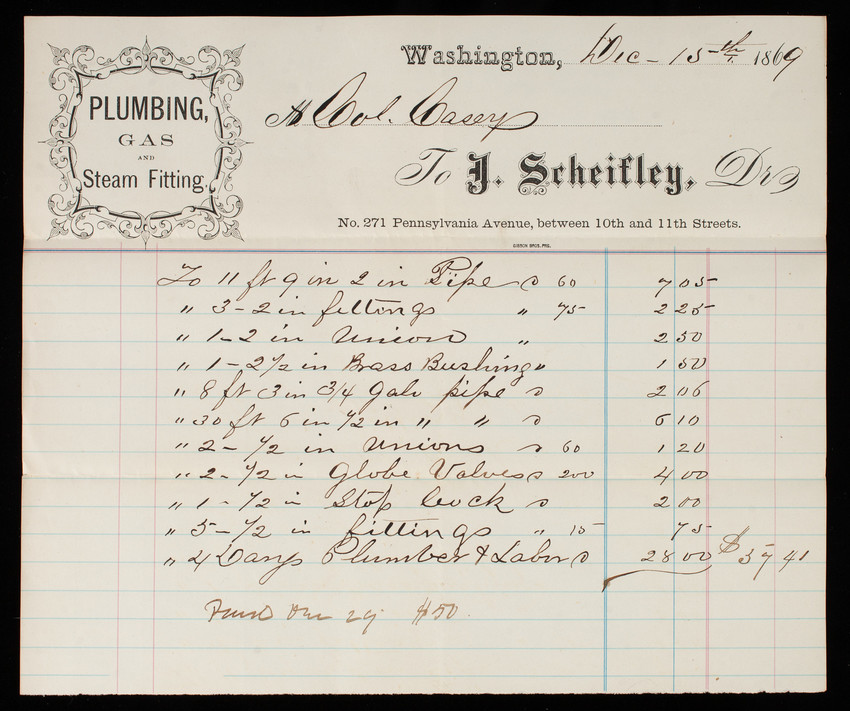 PLUMBING,
GAS
AND
Steam Fitting.
Washington, Dec - 15th 1869
Col. Casey
To J. Scheifley, Dr
No. 271 Pennsylvania Avenue, between 10th and 11th Streets.
GIBSON BROS. PRS.
To 11 ft 9 in 2 in Pipe 60 7 05
" 3 - 2 in fittings " 75 2 25
" 1 - 2 in Union " 2 50
" 1 - 2 1/2 in Brass Bushing " 1 50
" 8 ft 3 in 3/4 Galv pipe 2 06
" 30 ft 6 in 1/2 in " " 6 10
" 2 - 1/2 in Unions 60 1 20
" 2 - 1/2 in Globe Valves 200 4 00
" 1 - 1/2 in Stop Cock 2 00
" 5 - 1/2 in fittings " 15 75
" 4 Days Plumber & Labor 28 00 $57 41
29 $50